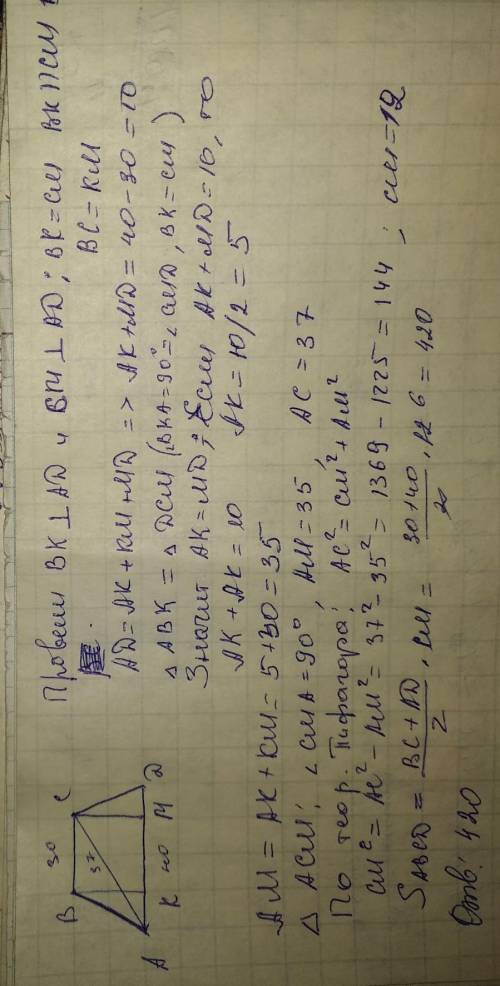 B 30 C
37
A K 40 M D
Провели BK ⊥ AD и ВМ ⊥ AD; BK = CM BK || CM
BC = KM
AD = AK + KM + MD => AK + MD = 40 - 30 = 10
△ ABK = △ DCM (∠BKA = 90° = ∠CMD, BK = CM)
Значит AK = MD; Если AK + MD = 10, то
AK + AK = 10 AK = 10/2 = 5
AM = AK + KM = 5 + 30 = 35
△ ACM: ∠CMA = 90°, AM = 35, AC = 37
По теор. Пифагора: AC² = CM² + AM²
CM² = AC² - AM² = 37² - 35² = 1369 - 1225 = 144; CM = 12
S ABCD = (BC + AD)/2 · CM = (30 + 40)/2 · 12 6 = 420
Отв: 420